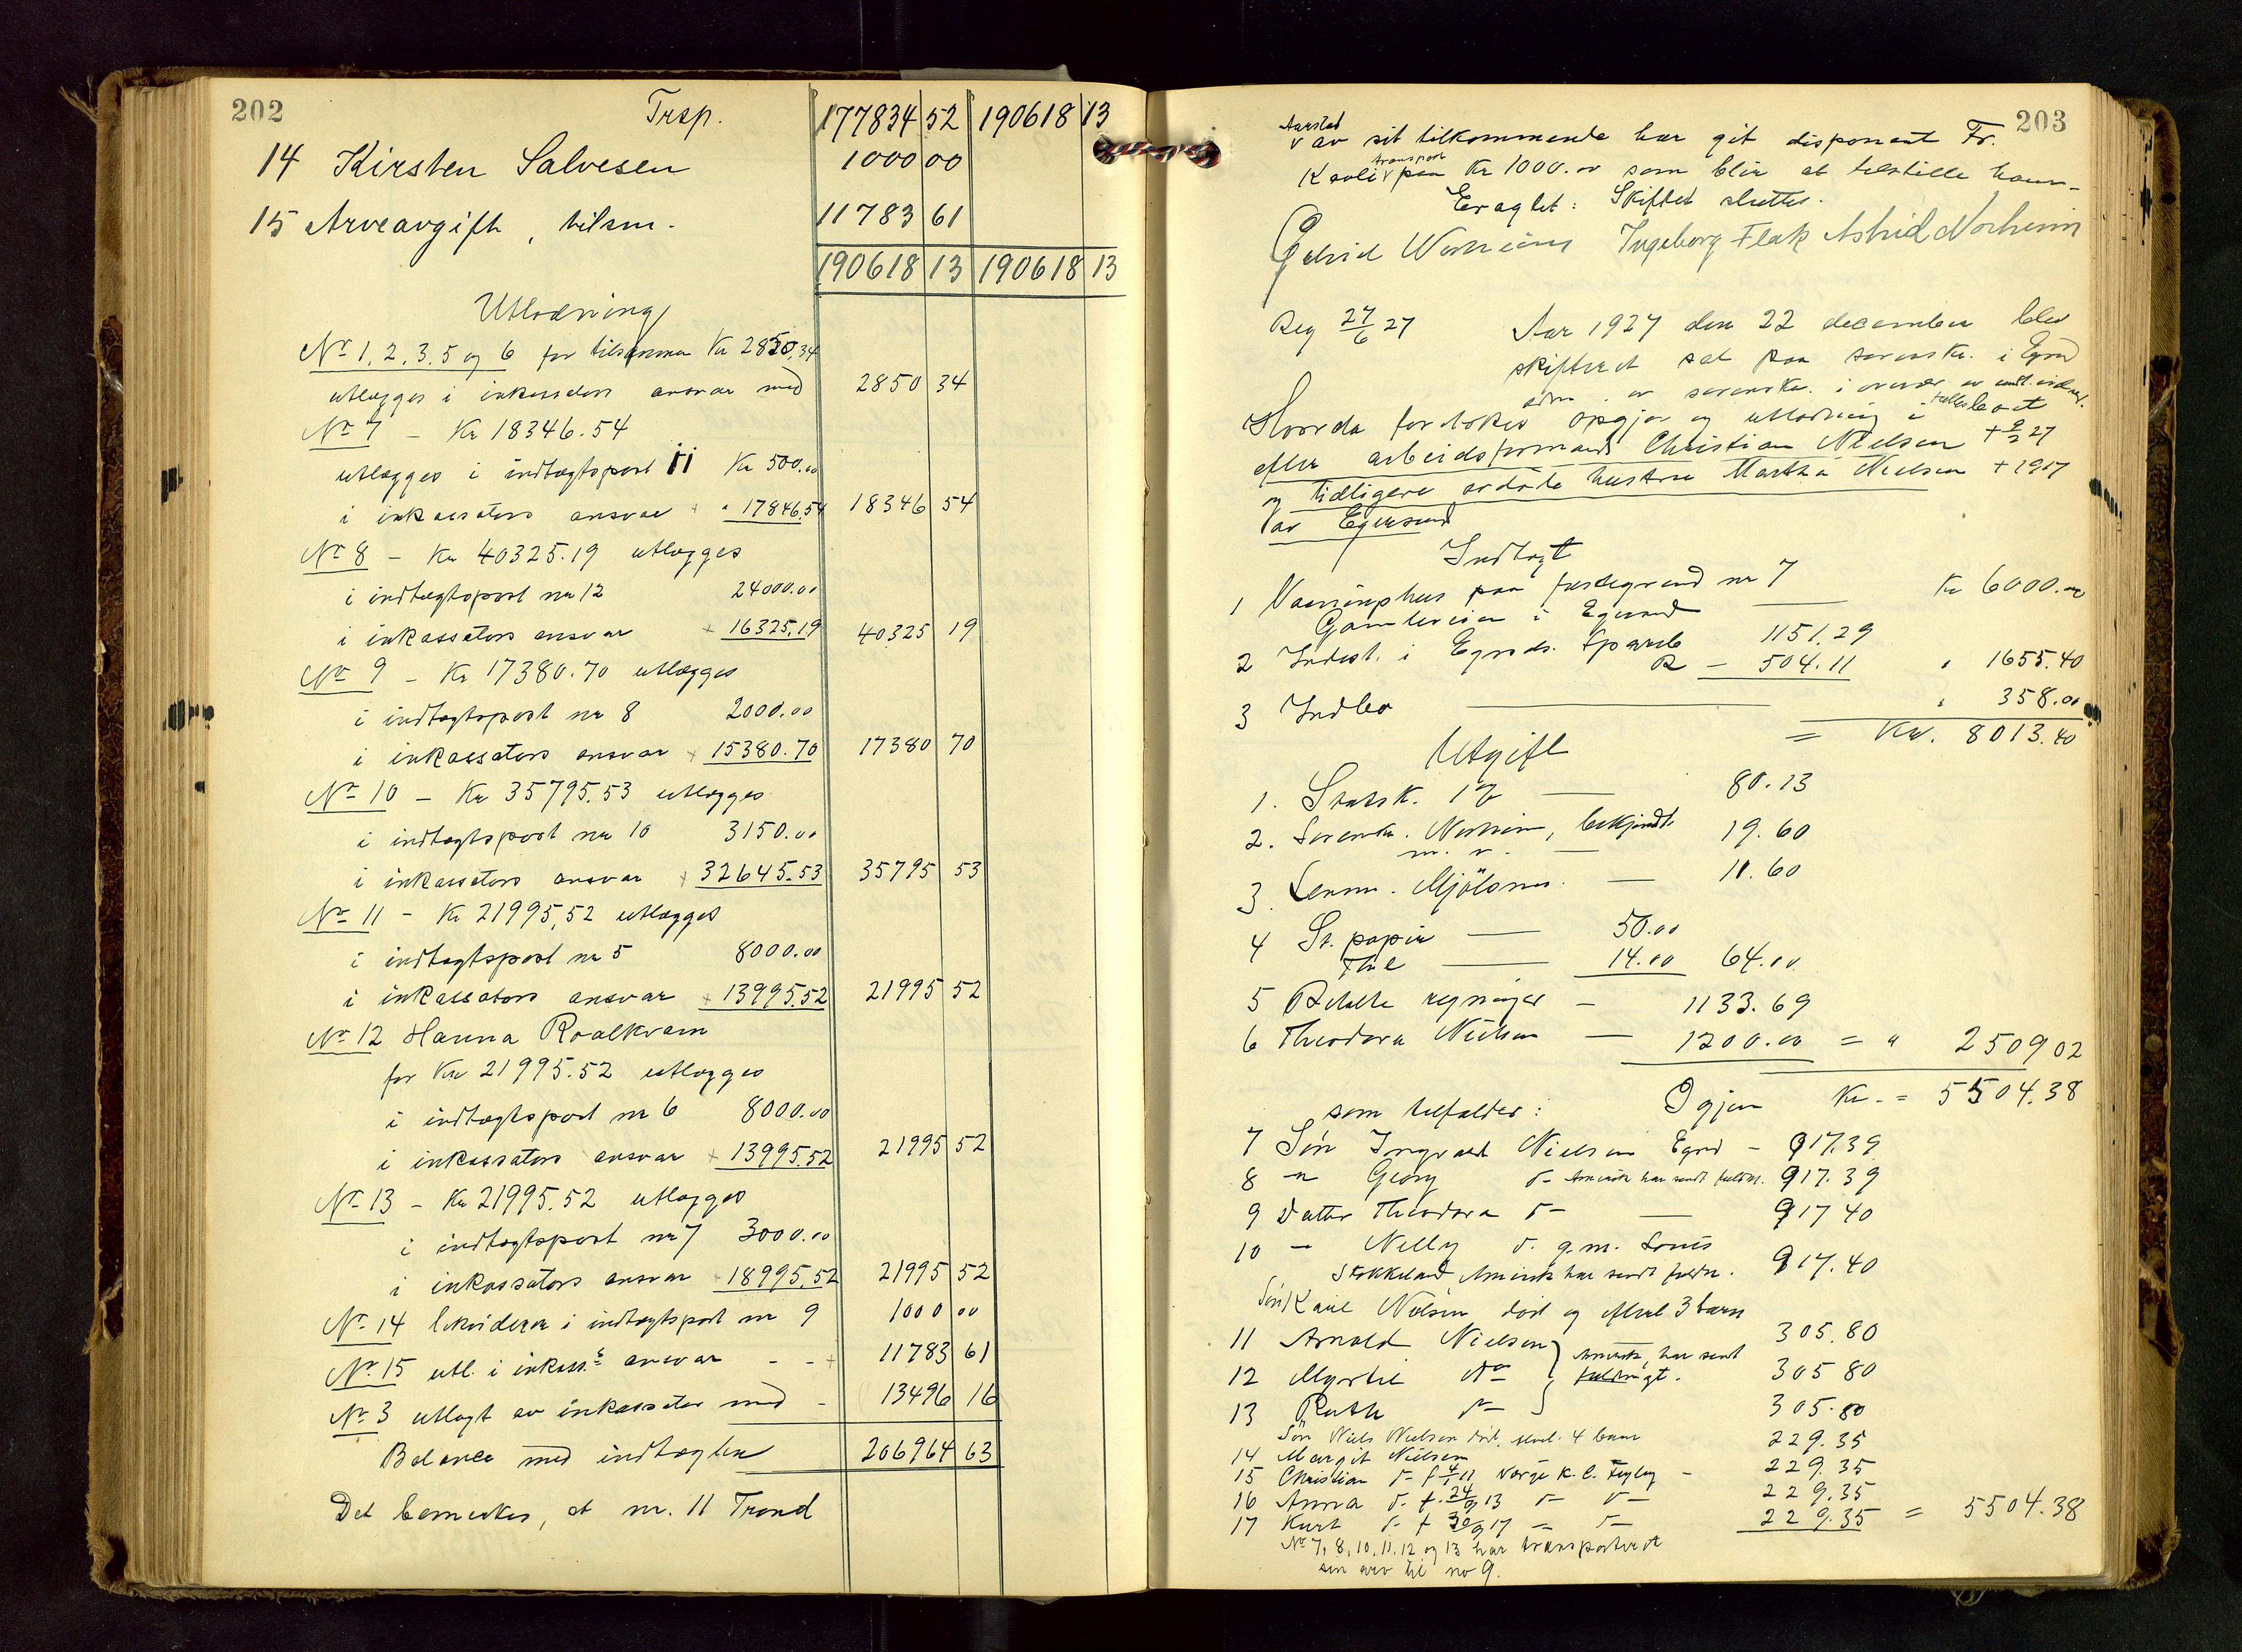 202
Trsp. 177834 52 190618 13
14 Kirsten Salvesen 1000 00
15 Arveavgift, tilsm. 11783 61
190618 13 190618 13
Utlodning
No 1, 2, 3, 5 og 6 for tilsammen Kr 2850,34
utlægges i inkassators ansvar med 2850 34
No 7 - Kr 18346.54
utlægges i indtægtspost 11 Kr 500.00
i inkassators ansvar + " 17846.54 18346 54
No 8 - Kr 40325.19 utlægges
i indtægtspost nr 12 24000.00
i inkassators ansvar + 16325.19 40325 19
No 9 - Kr 17380.70 utlægges
i indtægtspost nr 8 2000.00
i inkassators ansvar + 15380.70 17380 70
No 10 - Kr 35795.53 utlægges
i indtægtspost nr 10 3150.00
i inkassators ansvar + 32645.53 35795 53
No 11 - Kr 21995,52 utlægges
i indtægtspost nr 5 8000.00
i inkassators ansvar + 13995.52 21995 52
No 12 Hanna Roalkvam
for Kr 21995.52 utlægges
i indtægtspost nr 6 8000.00
i inkassators ansvar + 13995.52 21995 52
No 13 - Kr 21995.52 utlægges
i indtægtspost nr 7 3000.00
i inkassators ansvar + 18995.52 21995 52
No 14 likviderer i indtægtspost nr 9 1000 00
No 15 utl. i inkass.s ansvar - - + 11783 61
No 3 utlagt av inkassator med - 13496 16
Balance med indtægten 206964 63
Det bemerkes, at nr. 11 Trond
203
Aarstad
v av sit tilkommende har git disponent Fr.
Kavli v transport paa Kr 1000.00 som blir at tilstille ham-
Eraglet: Skiftet sluttes.
Wersheim Ingeborg Flak Astrid Norheim
Reg 27/6 27 Aar 1927 den 22 december blev
skifteret sat paa sorensk. i Egrsd
adm. av sorenskr. i overvær av undt. vidner.
Hvorda foretokes opgjør og utlodning i fællesboet
efter arbeidsformand Christian Nielsen + 2/3 27
og tidligere avdøde hustru Martha Nielsen + 1917
av Egersund
Indtægt
1 Vaaningshus paa festegrund nr 7
Gamleveien i Egersund — Kr 6000.00
2 Indest. i Egrsds. Spareb 1151.29
R - 504.11 " 1655.40
3 Indbo — " 358.00
= Kr. 8013.40
Utgift
1. Statsk. 1% — 80.13
2. Sorensk. Norheim, bekjendt.
m. v. — 19.60
3. Lensm. Mjölsnes. — 11.60
4 St. papir — 50.00
Thl — 14.00 64.00
5 Betalte regninger — 1133.69
6 Theodora Nielsen — 1200.00 = " 2509 02
Igjen Kr. = 5504.38
som tilfalder:
7 Søn Ingvald Nielsen Egrsd - 917.39
8 -"- Georg d- Amerika har sendt fuldm. 917.39
9 Datter Theodora d- — 917 40
10 -"- Nelly d. g.m. Louis
Stokkeland Amerika har sendt fuldm. 917.40
Søn Karl Nielsen død og efterl 3 barn
11 Arnold Nielsen } 305.80
12 Myrtle do } Amerika, har sendt fuldmagt. 305 80
13 Ruth d- } 305.80
Søn Niels Nielsen død, efterl. 4 barn
14 Margit Nielsen 229.35
15 Christian d- f 4/1 11 Værge K. C. - 229.35
16 Anna d. f. 24/9 13 d- d- 229.35
17 Kurt d- f 30/9 17 - d- 229.35 = 5504.38
No 7, 8, 10, 11, 12 og 13 har transporteret
sin arv til no 9.